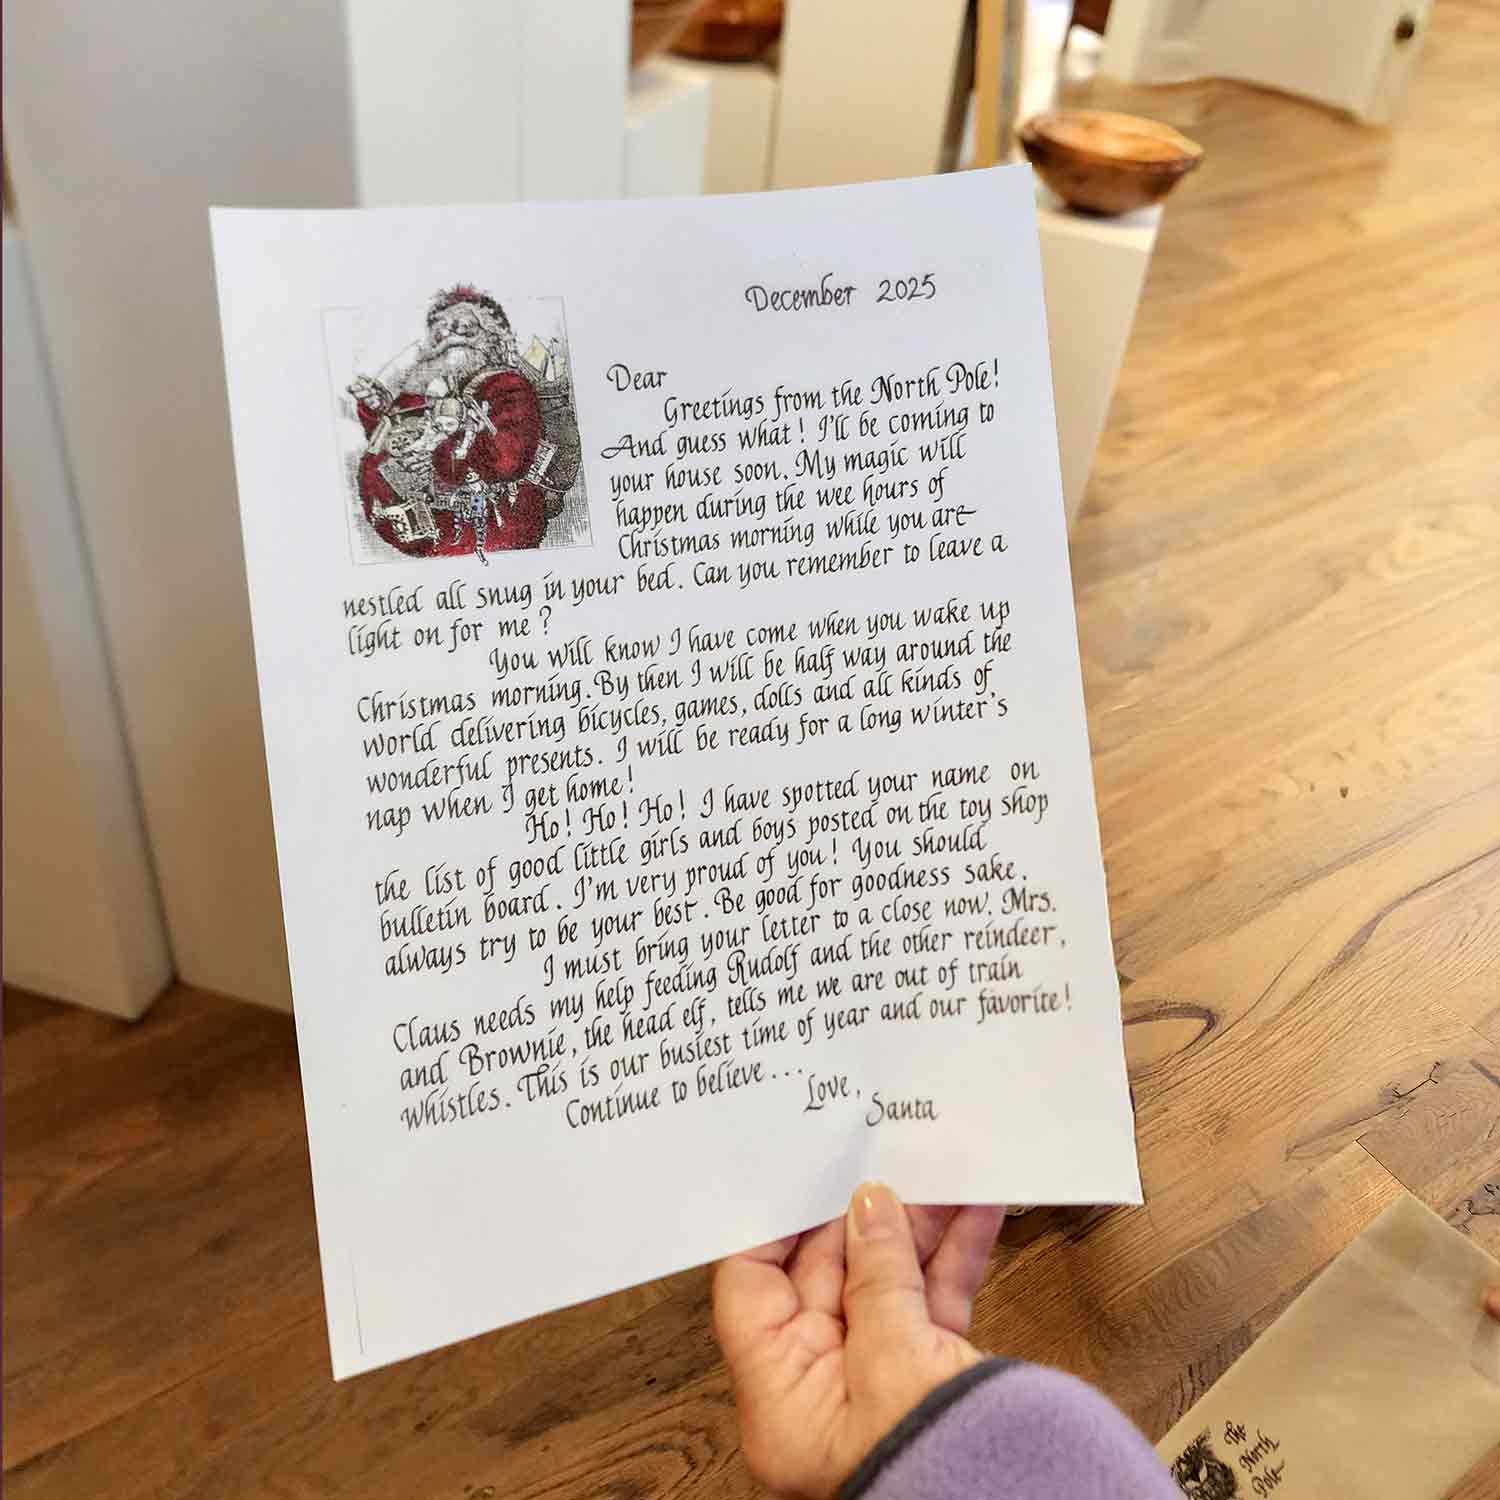 December 2025
Dear
Greetings from the North Pole!
And guess what! I'll be coming to
your house soon. My magic will
happen during the wee hours of
Christmas morning while you are
nestled all snug in your bed. Can you remember to leave a
light on for me?
You will know I have come when you wake up
Christmas morning. By then I will be half way around the
world delivering bicycles, games, dolls and all kinds of
wonderful presents. I will be ready for a long winter's
nap when I get home!
Ho! Ho! Ho! I have spotted your name on
the list of good little girls and boys posted on the toy shop
bulletin board. I'm very proud of you! You should
always try to be your best. Be good for goodness sake.
I must bring your letter to a close now. Mrs.
Claus needs my help feeding Rudolf and the other reindeer,
and Brownie, the head elf, tells me we are out of train
whistles. This is our busiest time of year and our favorite!
Continue to believe...
Love,
Santa
The
North
Pole